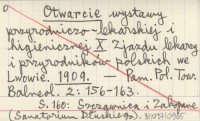 Otwarcie wystawy
przyrodniczo-lekarskiej i
higienicznej X Zjazdu lekarzy
i przyrodników polskich we
Lwowie. 1909. — Pam. Pol. Tow.
Balneol. 2: 156-163.
S. 160: Szczawnica i Zakopane
(Sanatorium Dłuskiego).